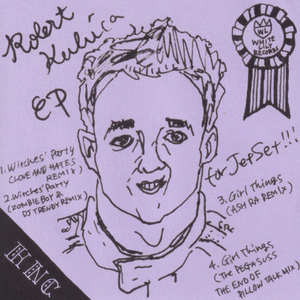 Robert
Kubica
EP
WL
WHITE
LILY
RECORDS
for JetSet!!!
1. Witches' Party
(LOVE AND HATES
REMIX)
2. Witches' Party
(ZOMBIE BOY &
DJ TRENDY REMIX)
3. Girl Things
(ASH RA REMIX)
4. Girl Things
(The PEGASUSS
THE END OF
PILLOW TALK MIX)
HNC